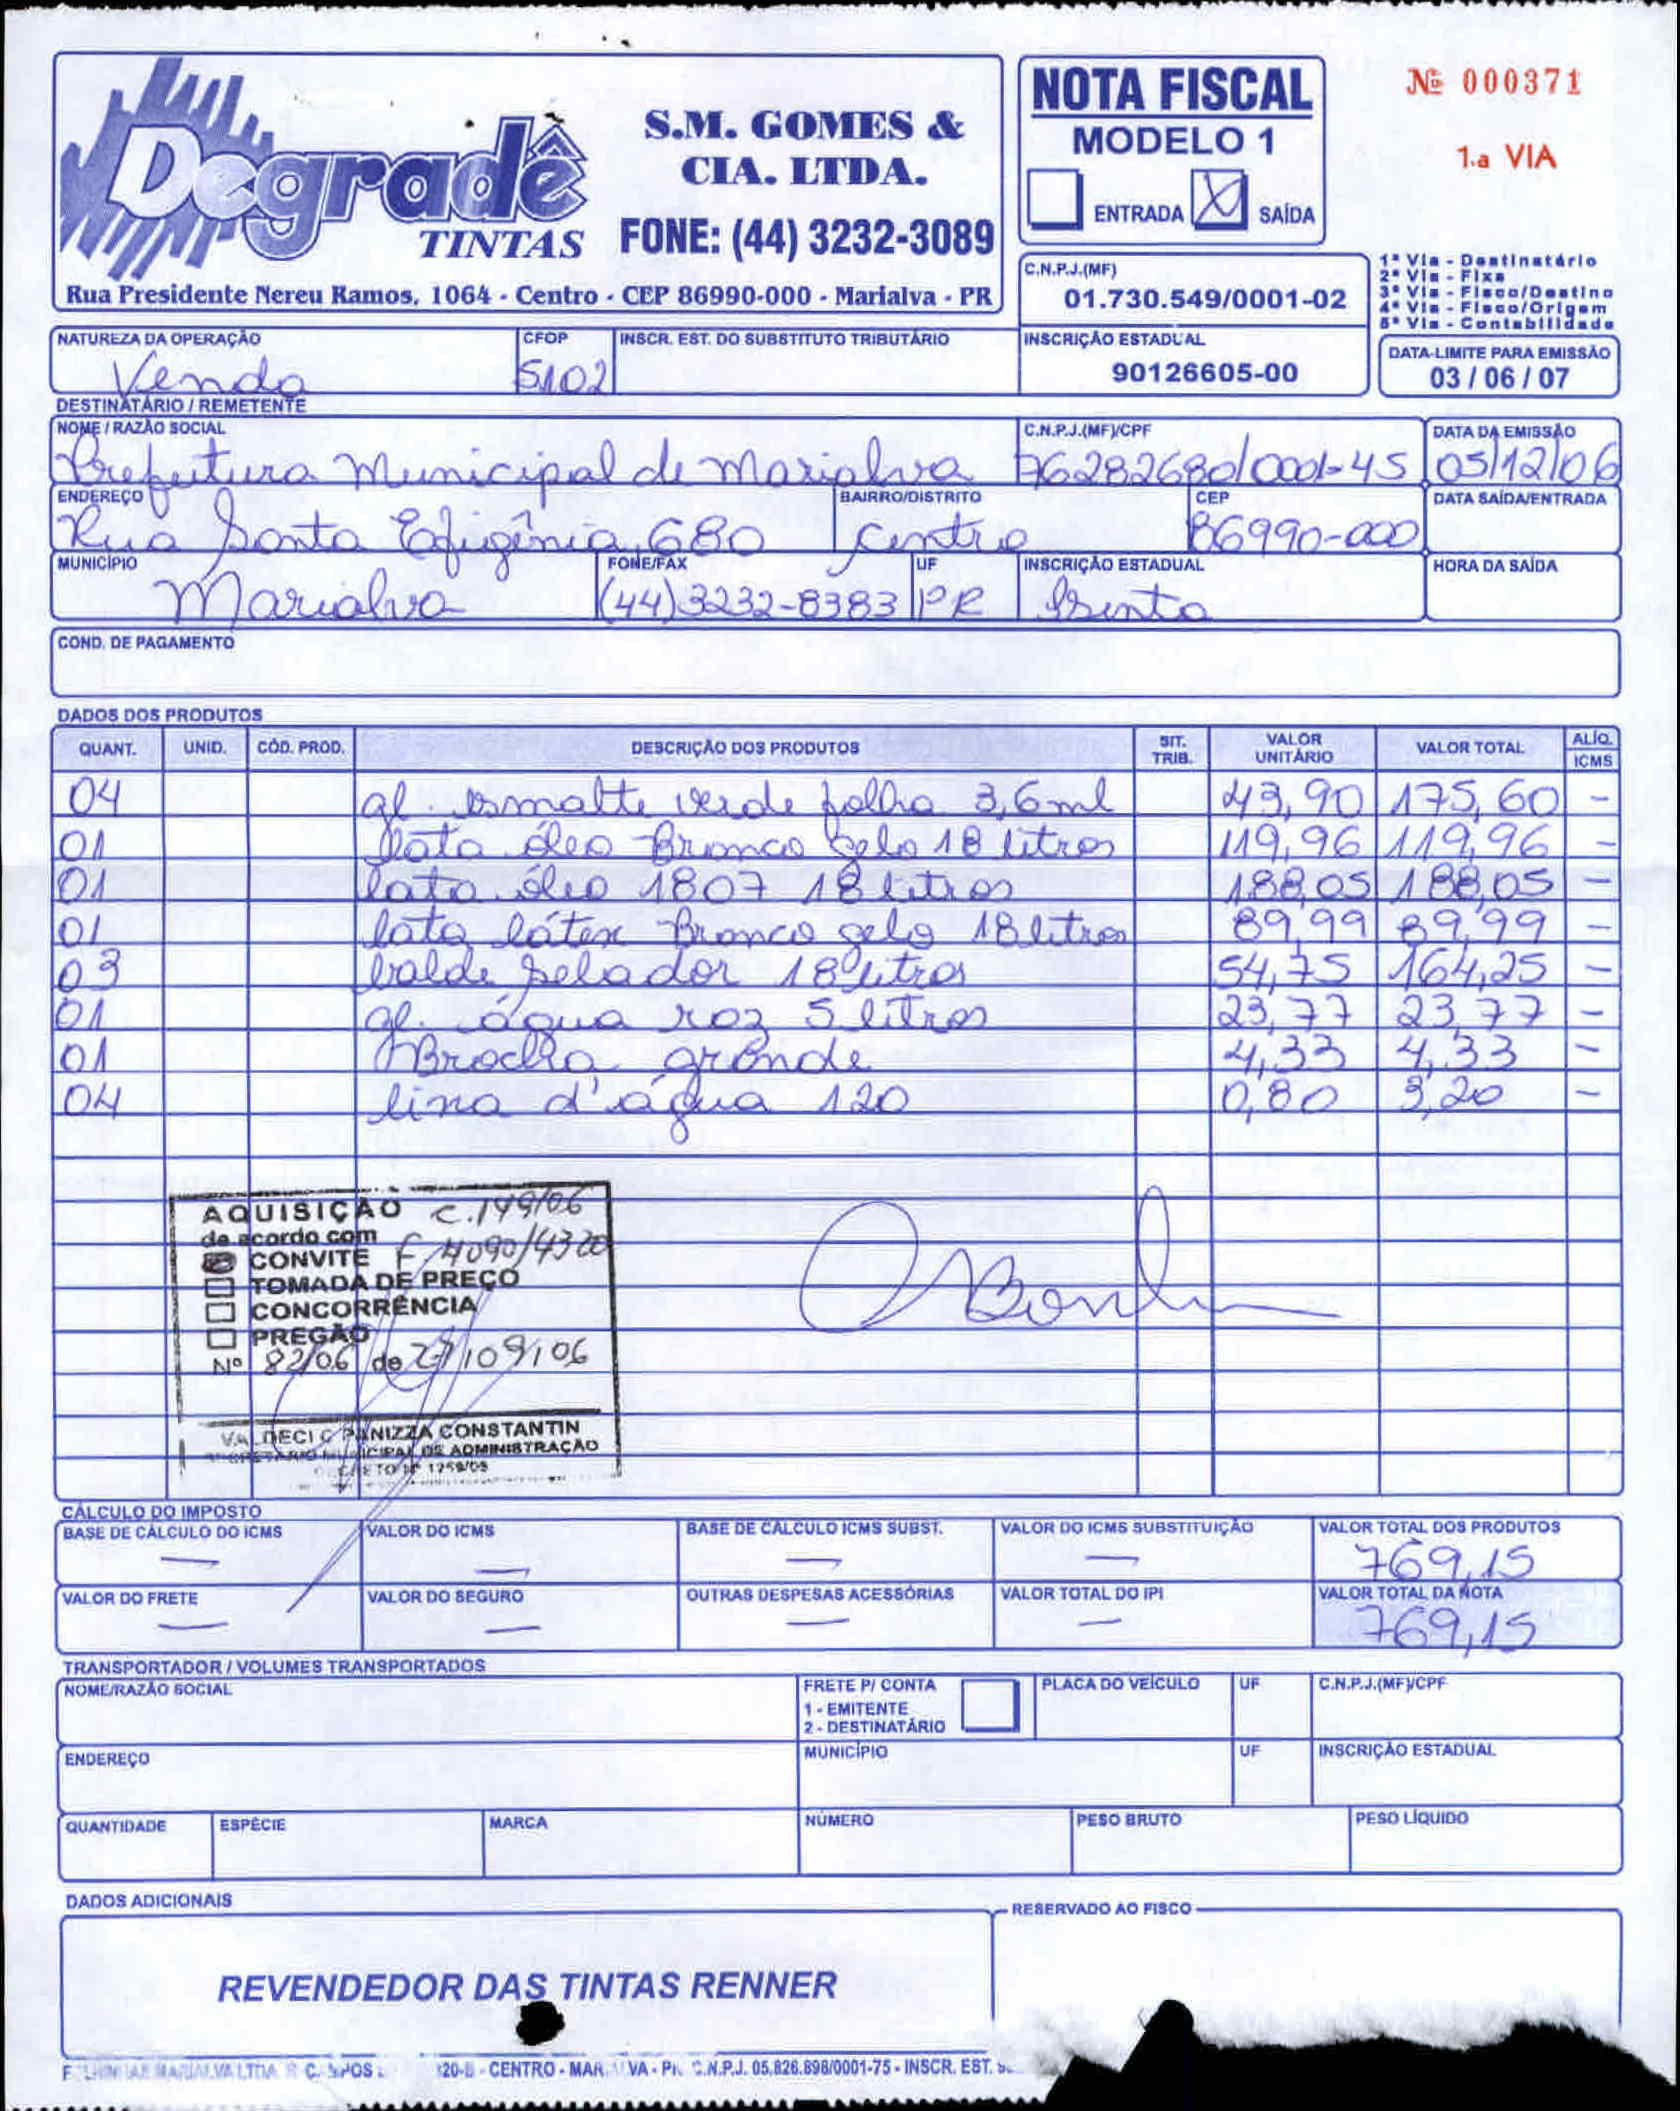 Degradê
TINTAS
S.M. GOMES &
CIA. LTDA.
FONE: (44) 3232-3089
Rua Presidente Nereu Ramos, 1064 - Centro - CEP 86990-000 - Marialva - PR
NOTA FISCAL
MODELO 1
ENTRADA SAÍDA
Nº 000371
1.a VIA
C.N.P.J.(MF)
01.730.549/0001-02
1ª Via - Destinatário
2ª Via - Fixa
3ª Via - Fisco/Destino
4ª Via - Fisco/Origem
5ª Via - Contabilidade
NATUREZA DA OPERAÇÃO CFOP INSCR. EST. DO SUBSTITUTO TRIBUTÁRIO INSCRIÇÃO ESTADUAL DATA-LIMITE PARA EMISSÃO
Venda 5102 90126605-00 03 / 06 / 07
DESTINATÁRIO / REMETENTE
NOME / RAZÃO SOCIAL C.N.P.J.(MF)/CPF DATA DA EMISSÃO
Prefeitura Municipal de Marialva 76282680/0001-45 05/12/06
ENDEREÇO BAIRRO/DISTRITO CEP DATA SAÍDA/ENTRADA
Rua Santa Efigênia, 680 Centro 86990-000
MUNICÍPIO FONE/FAX UF INSCRIÇÃO ESTADUAL HORA DA SAÍDA
Marialva (44) 3232-8383 PR Isento
COND. DE PAGAMENTO
DADOS DOS PRODUTOS
QUANT. UNID. CÓD. PROD. DESCRIÇÃO DOS PRODUTOS SIT. TRIB. VALOR UNITÁRIO VALOR TOTAL ALÍQ. ICMS
04 gl. esmalte verde folha 3,6ml 43,90 175,60 -
01 lata óleo Branco Gelo 18 litros 119,96 119,96 -
01 lata óleo 1807 18 litros 188,05 188,05 -
01 lata látex Branco gelo 18 litros 89,99 89,99 -
03 balde selador 18 litros 54,75 164,25 -
01 gl. água roz 5 litros 23,77 23,77 -
01 Brocha grande 4,33 4,33 -
04 lixa d'água 120 0,80 3,20 -
AQUISIÇÃO C.149/06
de acordo com
CONVITE F 4090/4320
TOMADA DE PREÇO
CONCORRÊNCIA
PREGÃO
Nº 82/06 de 27/09/06
VALDECI C PANIZZA CONSTANTIN
SECRETÁRIO MUNICIPAL DE ADMINISTRAÇÃO
DECRETO Nº
CÁLCULO DO IMPOSTO
BASE DE CÁLCULO DO ICMS VALOR DO ICMS BASE DE CÁLCULO ICMS SUBST. VALOR DO ICMS SUBSTITUIÇÃO VALOR TOTAL DOS PRODUTOS
— — — — 769,15
VALOR DO FRETE VALOR DO SEGURO OUTRAS DESPESAS ACESSÓRIAS VALOR TOTAL DO IPI VALOR TOTAL DA NOTA
— — — — 769,15
TRANSPORTADOR / VOLUMES TRANSPORTADOS
NOME/RAZÃO SOCIAL FRETE P/ CONTA PLACA DO VEÍCULO UF C.N.P.J.(MF)/CPF
1 - EMITENTE
2 - DESTINATÁRIO
ENDEREÇO MUNICÍPIO UF INSCRIÇÃO ESTADUAL
QUANTIDADE ESPÉCIE MARCA NÚMERO PESO BRUTO PESO LÍQUIDO
DADOS ADICIONAIS RESERVADO AO FISCO
REVENDEDOR DAS TINTAS RENNER
MARIALVA LTDA - CENTRO - C.N.P.J. 05.826.898/0001-75 - INSCR. EST.